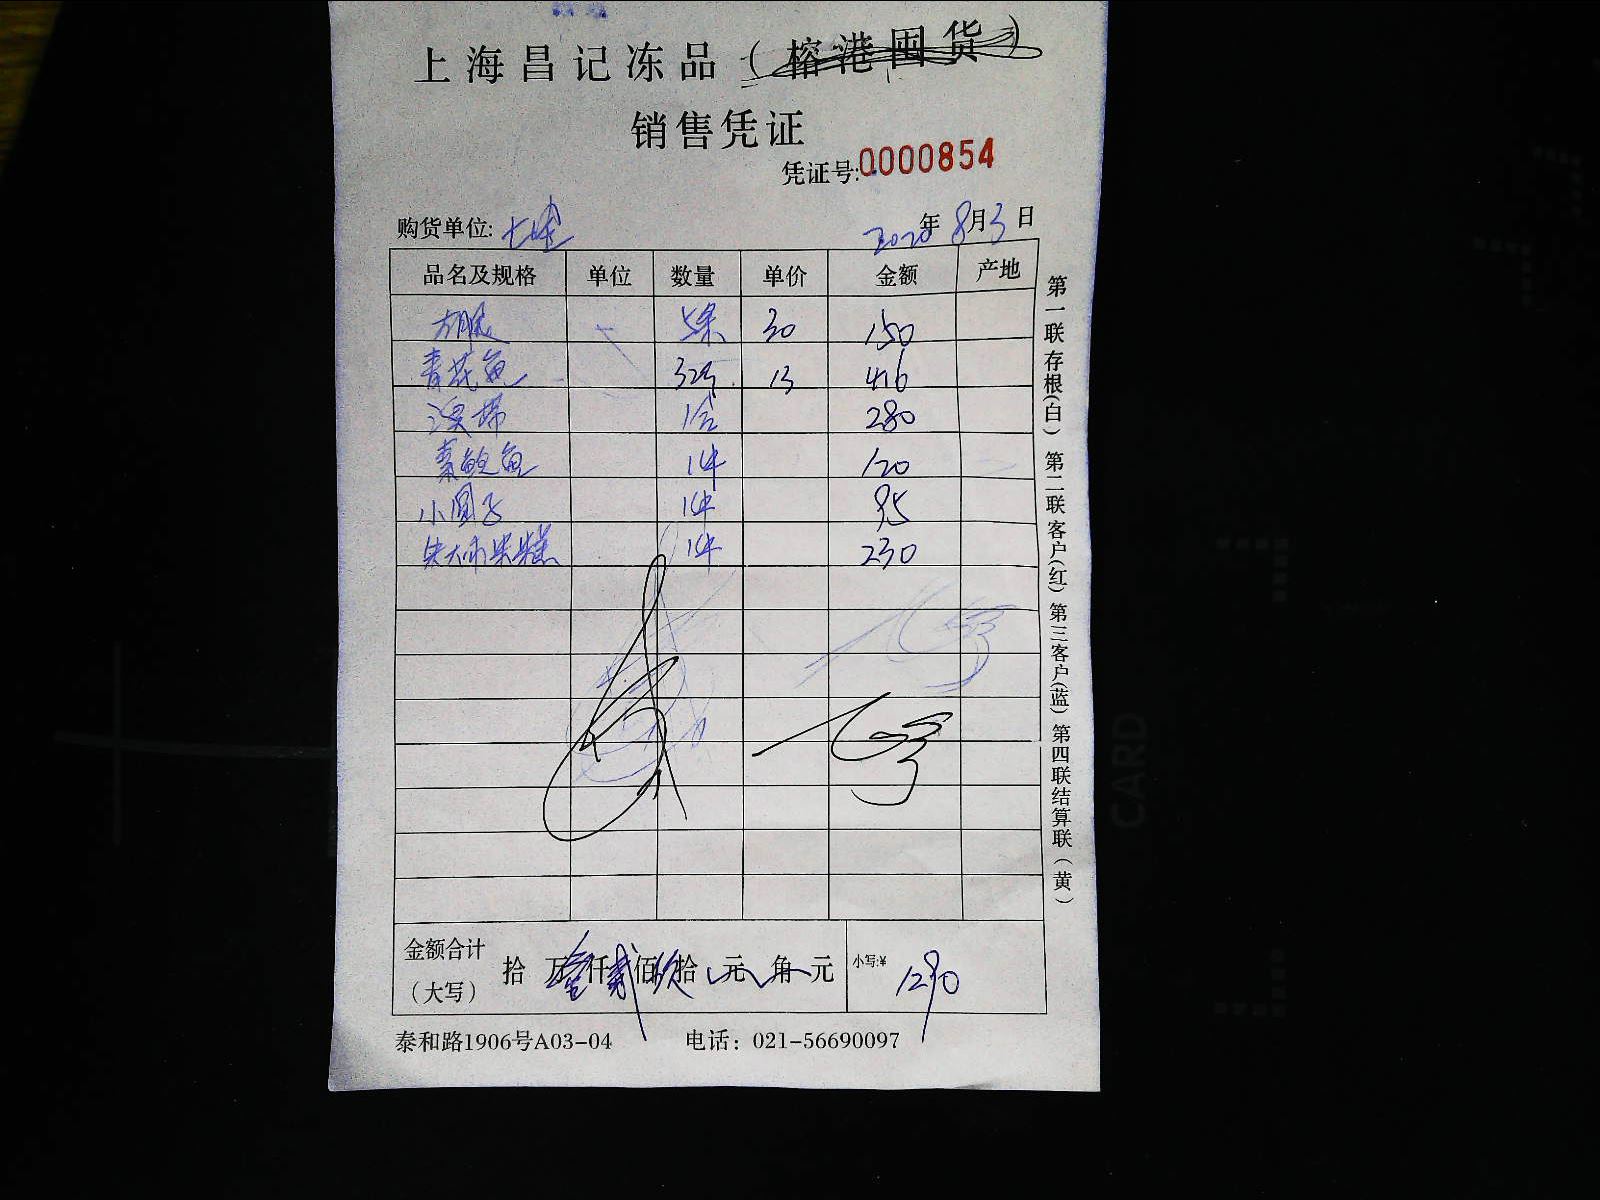 上海昌记冻品（榕港囤货）
销售凭证
凭证号:0000854
购货单位: 2020年8月3日
品名及规格 单位 数量 单价 金额 产地
5条 30 150
青花鱼 32斤 13 416
1盒 280
素鲍鱼 1件 120
小圆子 1件 95
朱大师米糕 1件 230
金额合计（大写） 拾万壹仟贰佰玖拾元角元 小写:¥ 1290
泰和路1906号A03-04 电话：021-56690097
第一联存根(白) 第二联客户(红) 第三客户(蓝) 第四联结算联（黄）
CARD